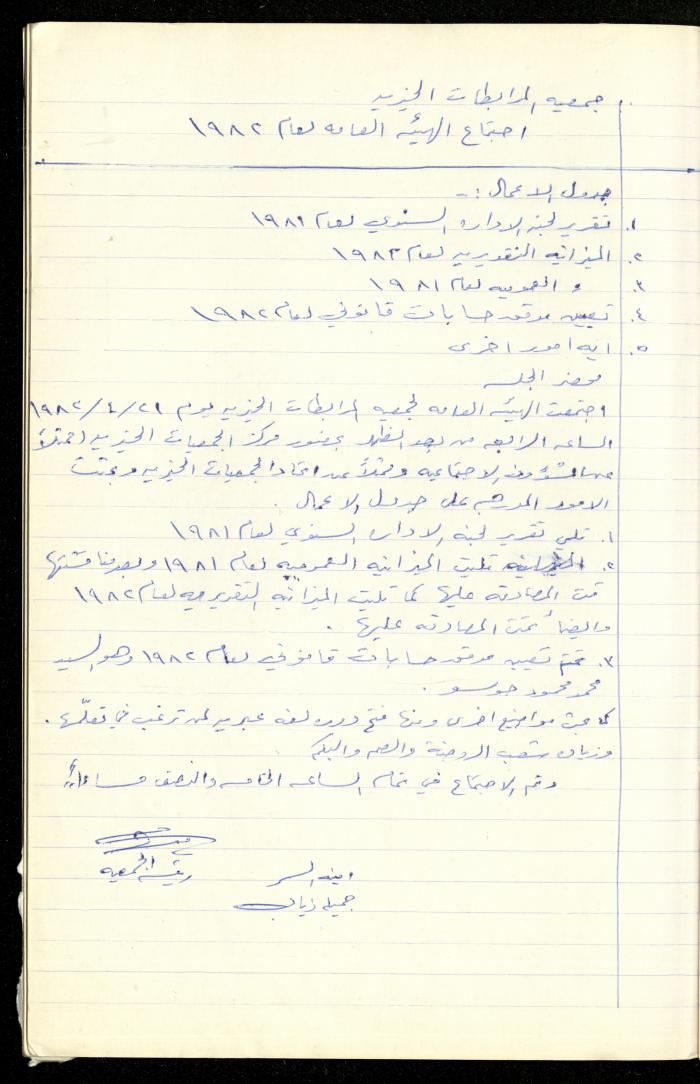 جمعيه المرابطات الخيريه
اجتماع الهيئه العامه لعام ١٩٨٢
جدول الاعمال :-
١. تقرير لجنه الاداره السنوي لعام ١٩٨١
٢. الميزانيه التقديريه لعام ١٩٨٢
٣. " العموميه لعام ١٩٨١
٤. تعيين مدقق حسابات قانوني لعام ١٩٨٢
٥. ايه امور اخرى
محضر الجلسه
اجتمعت الهيئه العامه لجمعيه المرابطات الخيريه يوم ٢١/٤/١٩٨٢
الساعه الرابعه من بعد الظهر بحضور مركز الجمعيات الخيريه (ممثلاً
عن الشؤون الاجتماعيه وممثلاً عن اتحاد الجمعيات الخيريه وبحثت
الامور المدرجه على جدول الاعمال .
١. تلي تقرير لجنه الاداره السنوي لعام ١٩٨١
٢. تليت الميزانيه العموميه لعام ١٩٨١ وبعد مناقشتها
تمت المصادقه عليها كما تليت الميزانيه التقديريه لعام ١٩٨٢
وايضاً تمت المصادقه عليها .
٣. تم تعيين مدقق حسابات قانوني لعام ١٩٨٢ وهو السيد
محمد محمود .
كما بحثت مواضيع اخرى ومنها فتح دوره لغه عبريه لمن ترغب في تعلّمها .
وزياده شعب الروضة والصم والبكم
وتم الاجتماع في تمام الساعه الخامسه والنصف مساءاً
رئيسة الجمعيه
امينه السر
جميله ذياب